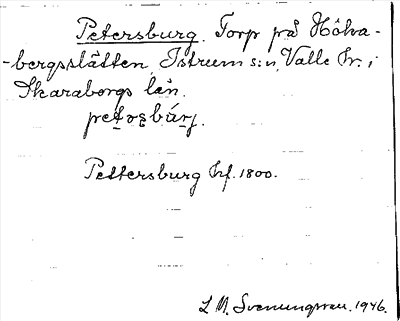 Petersburg. Torp på Hölva-
-bergsslätten, Istrum s:n, Valle hr. i
Skaraborgs län.
Pettersburg hf. 1800.
L M. Svenungsson. 1946.